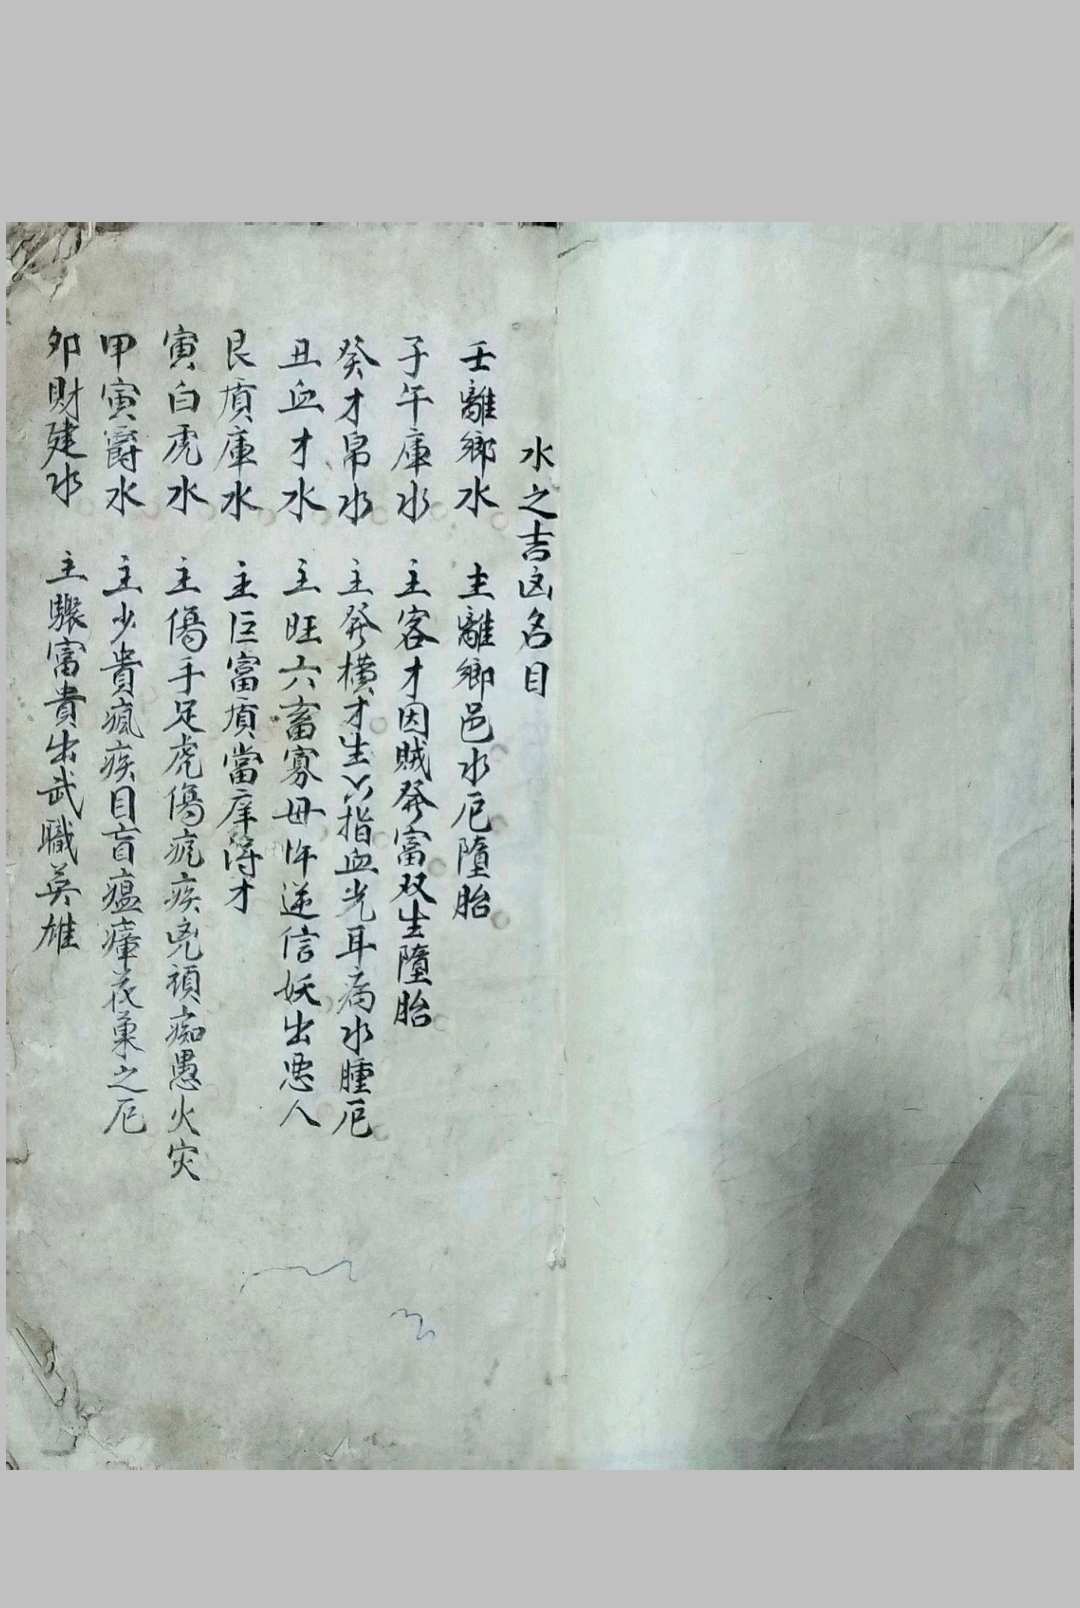 水之吉凶名目
壬離鄉水 主離鄉邑水厄墮胎
子午庫水 主客才因賊發富双生墮胎
癸才帛水 主發橫才生六指血光耳病水腫厄
丑血才水 主旺六畜寡母忤逆信妖出惡人
艮庫水 主巨富當庠得才
寅白虎水 主傷手足虎傷疾兇頑痴愚火灾
甲寅爵水 主少貴瘋疾目盲瘟瘴之厄
夘財建水 主驟富貴出武職英雄